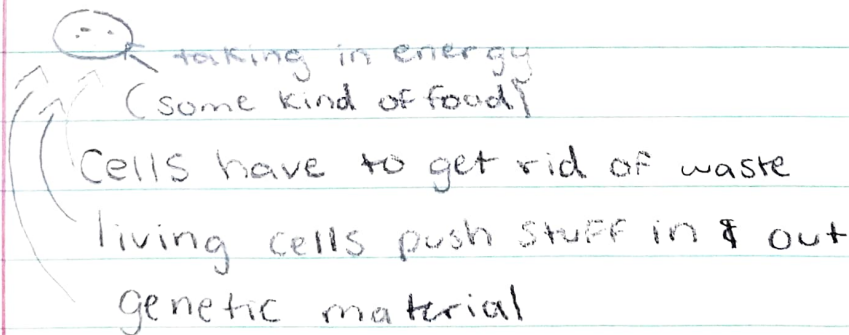 taking in energy
(some kind of food)
Cells have to get rid of waste
living cells push stuff in & out
genetic material